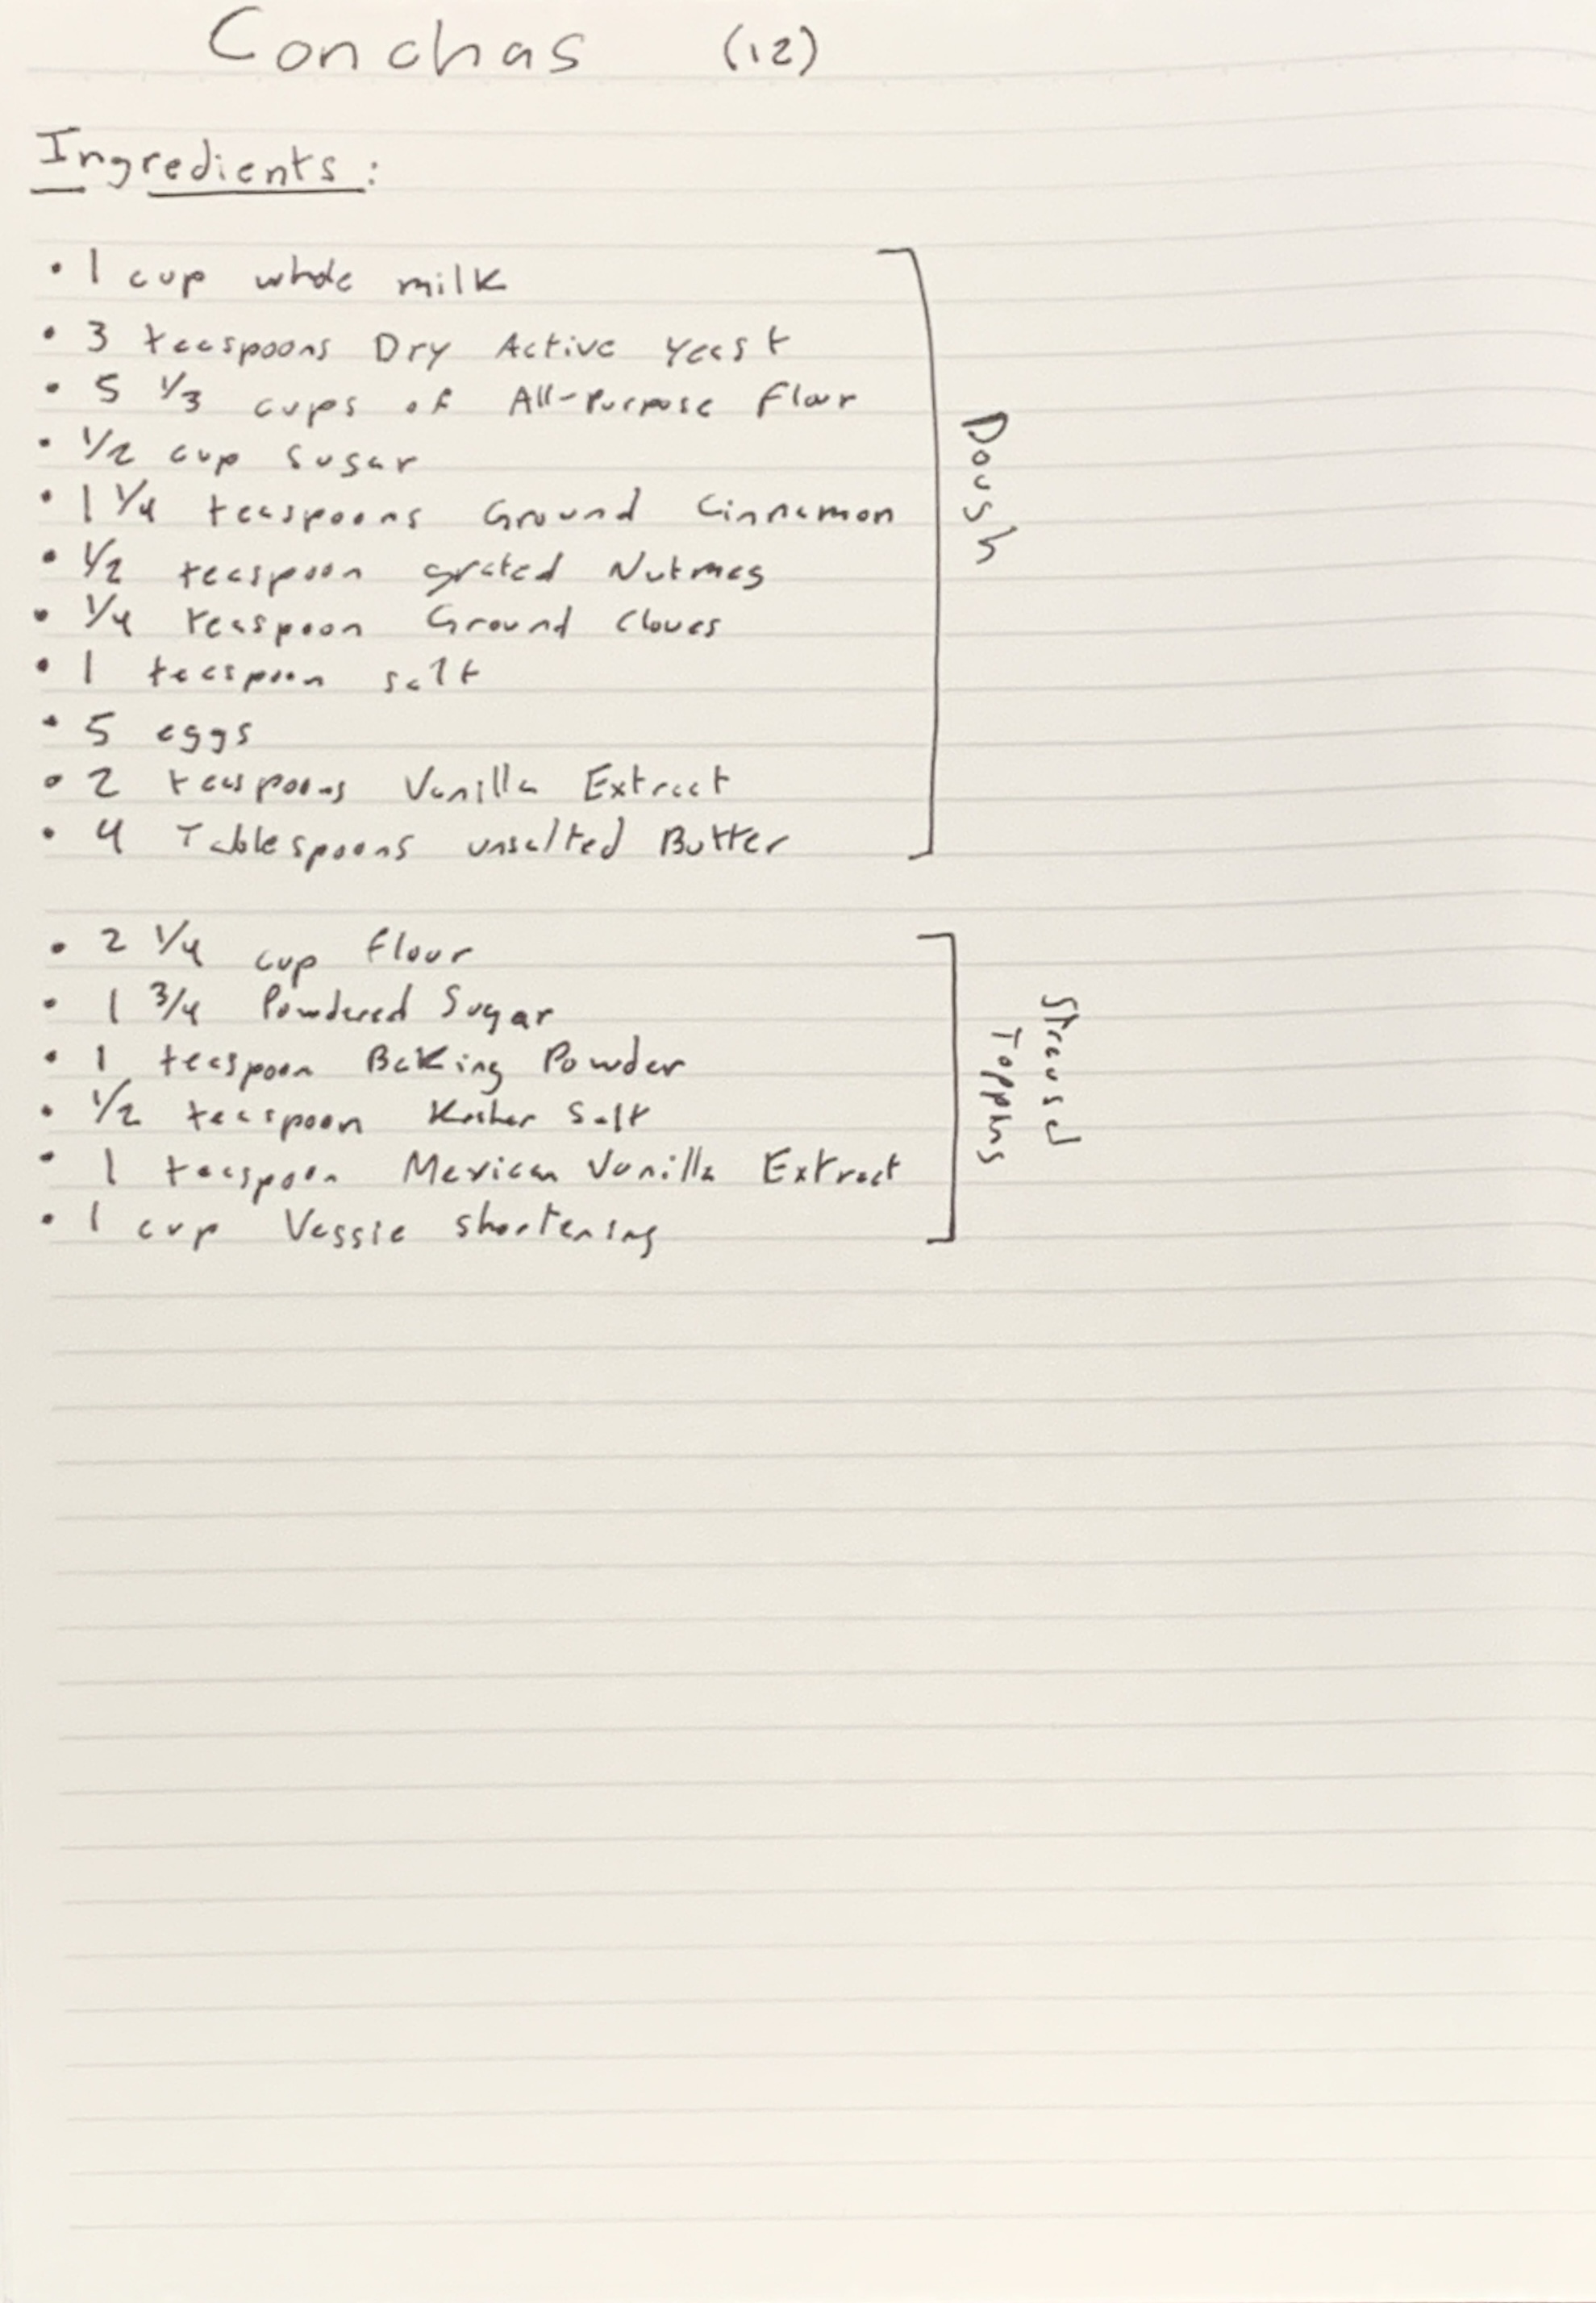 Conchas (12)
Ingredients:
• 1 cup whole milk
• 3 teaspoons Dry Active Yeast
• 5 1/3 cups of All-Purpose Flour
• 1/2 cup Sugar
• 1 1/4 teaspoons Ground Cinnamon
• 1/2 teaspoon grated Nutmeg
• 1/4 teaspoon Ground Cloves
• 1 teaspoon salt
• 5 eggs
• 2 teaspoons Vanilla Extract
• 4 Tablespoons unsalted Butter
Dough
• 2 1/4 cup Flour
• 1 3/4 Powdered Sugar
• 1 teaspoon Baking Powder
• 1/2 teaspoon Kosher Salt
• 1 teaspoon Mexican Vanilla Extract
• 1 cup Veggie shortening
Streusel
Topping